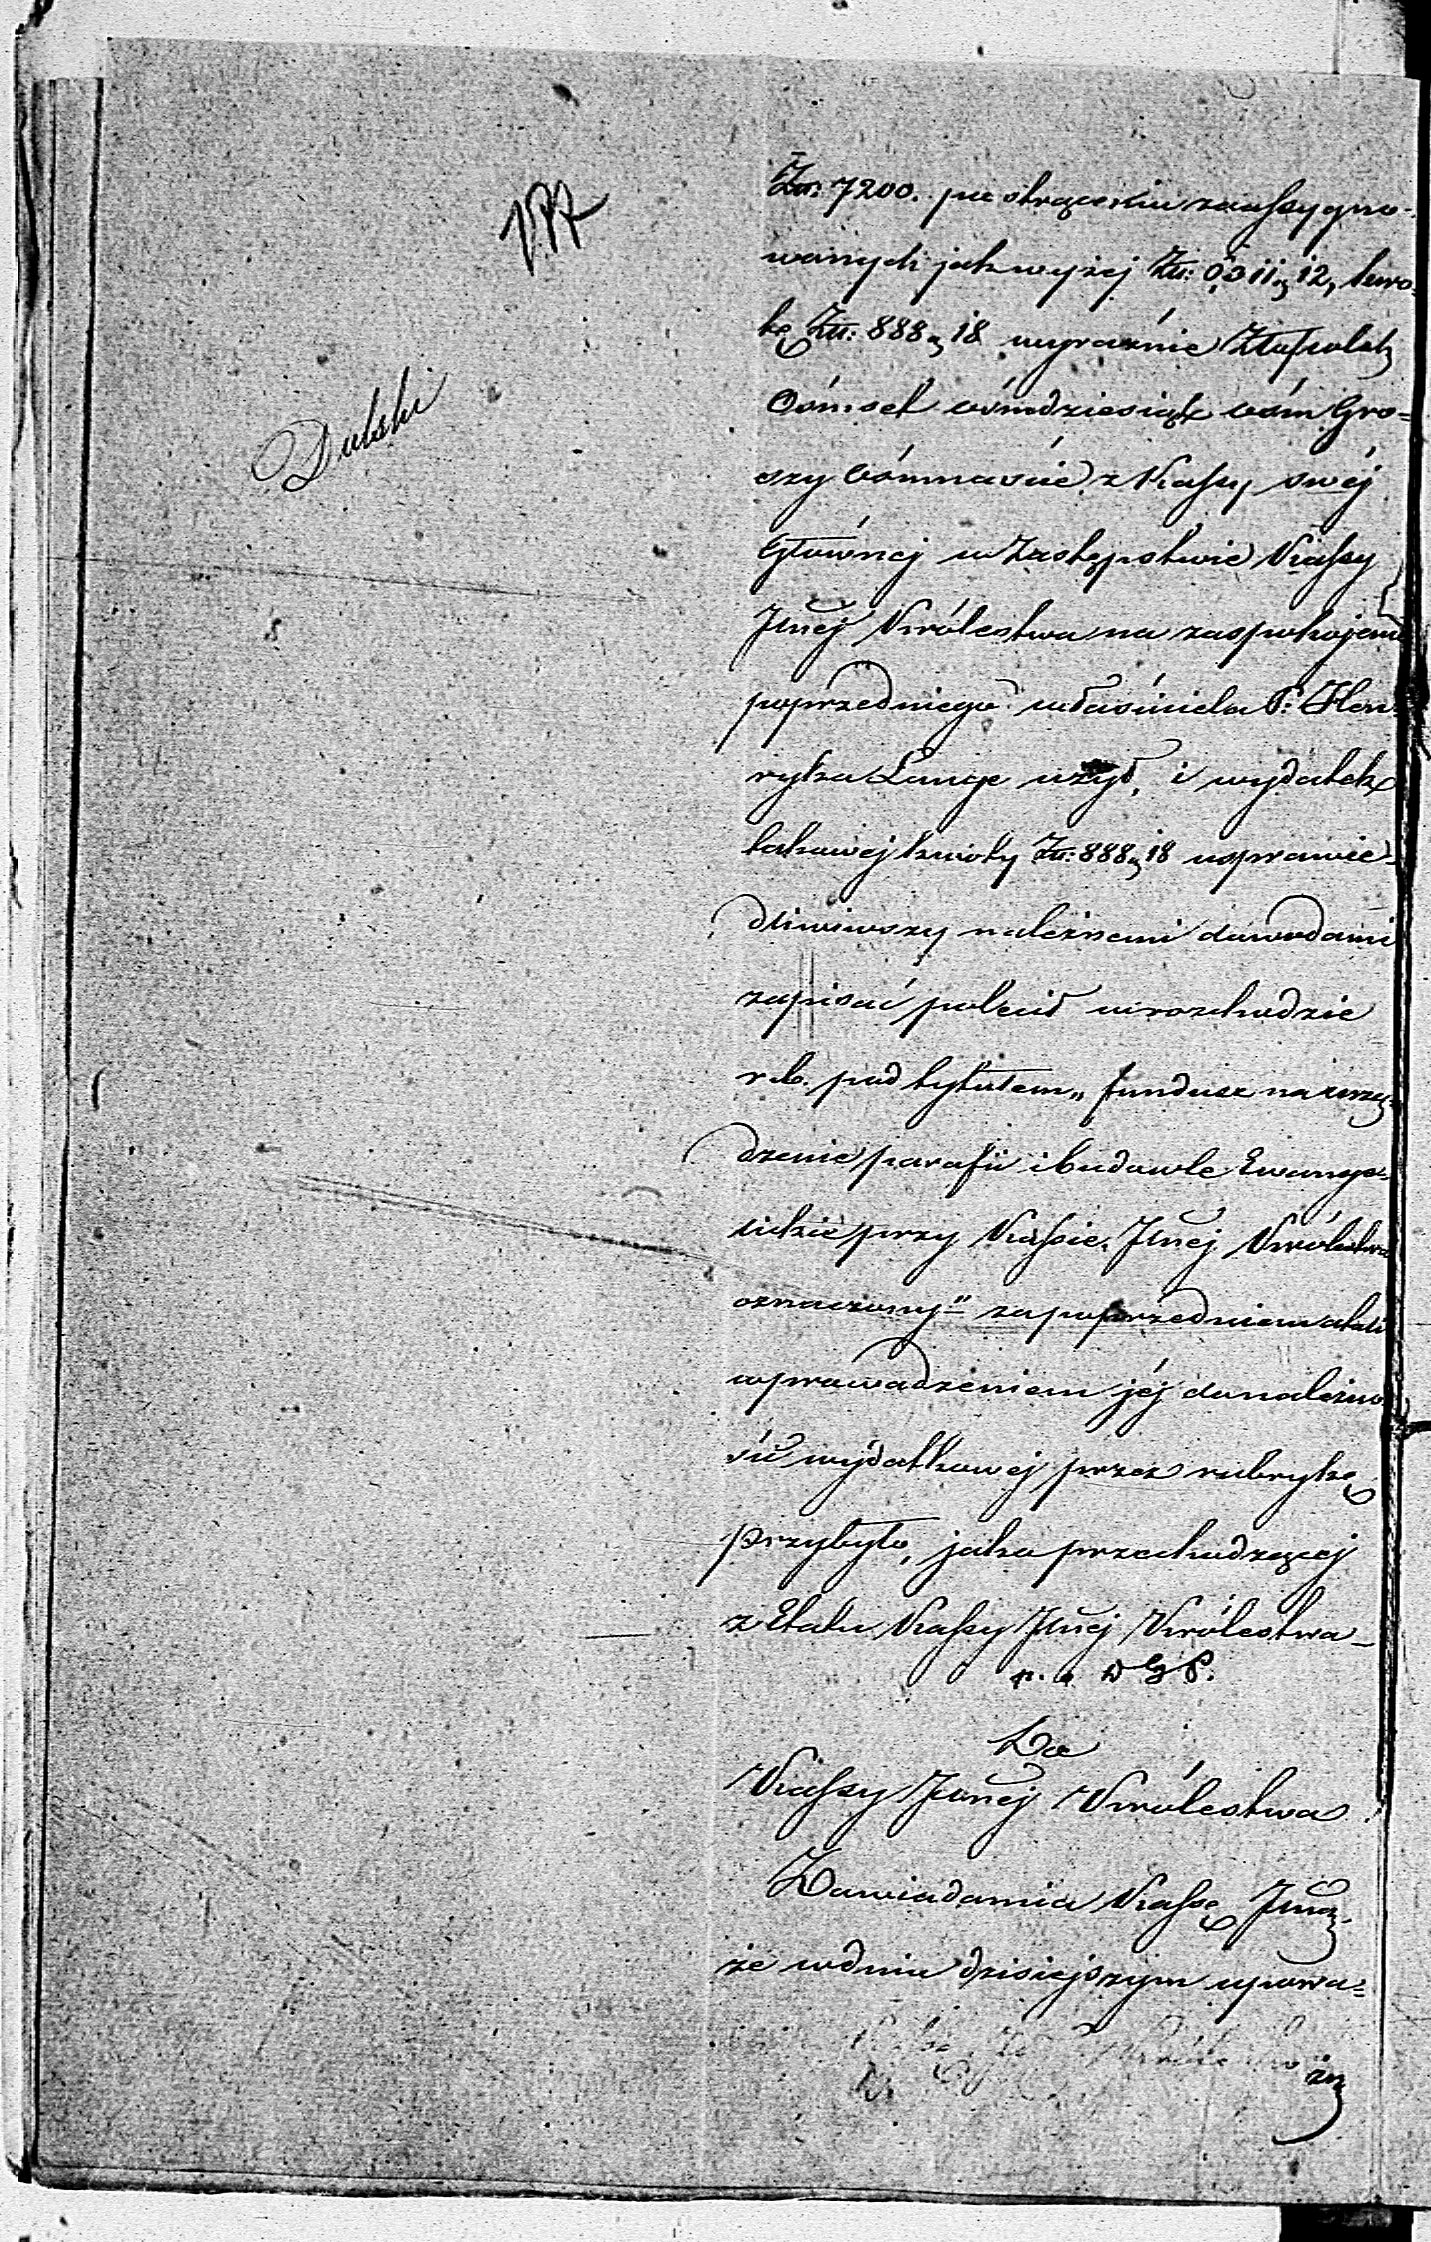 Dulski
Złł: 7200. po strąceniu zaassygno-
wanych jak wyżej Złł: 6311 g 12, kwo-
tę Złł: 888 g 18 wyraźnie Złł polsk
Ośmset ośmdziesiąt ośm Gro-
szy Ośmnaście z Kassy swéj
Głównej w Zastępstwie Kassy
Jłnej Królestwa na zaspokojenie
poprzedniego właściciela P: Hen-
ryka Lange użył, i wydatek
takowej kwoty Złł: 888 g 18 usprawie-
dliwiwszy należnemi dowodami
zapisać polecił w rozchodzie
r. b. pod tytułem „fundusz na urzą-
dzenie parafii i budowle Ewange-
lickie przy Kassie Jłnej Królestwa
oznaczony" za poprzedniem atoli
wprowadzeniem jéj do należno-
ści wydatkowej przez rubrykę
przybyło, jako przechodzącej
z Etatu Kassy Jłnej Królestwa_
Do
Kassy Jłnej Królestwa
Zawiadamia Kassę Jłną
że w dniu dzisiejszym upowa-
żn